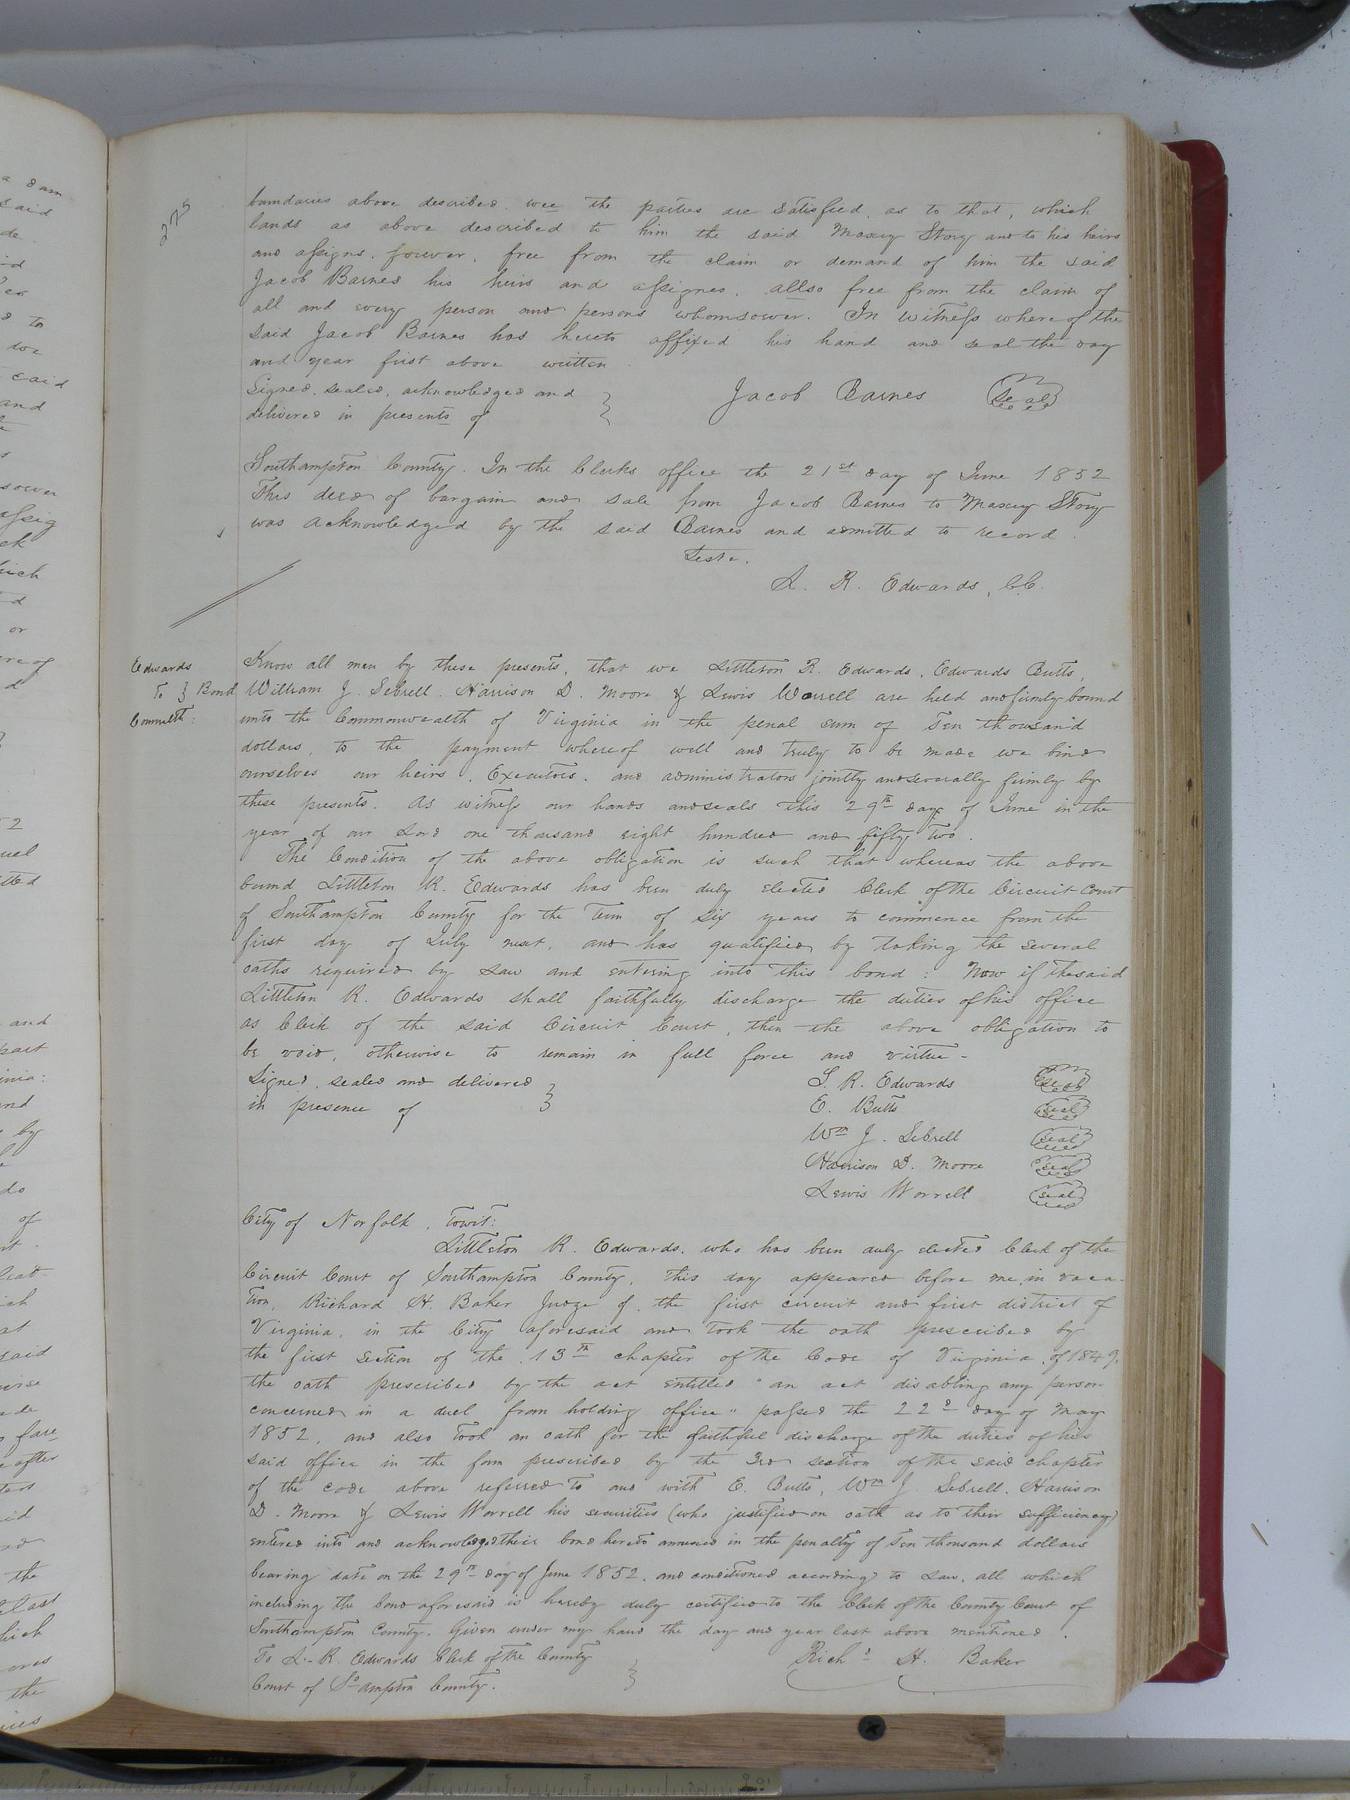 275
boundaries above described wee the parties are Satisfied, as to that, which
lands as above described to him the said Maxey Story and to his heirs
and assigns, forever, free from the claim or demand of him the said
Jacob Barnes his heirs and assignes, allso free from the claim of
all and every person and persons whomsoever. In witness whereof the
said Jacob Barnes has hereto affixed his hand and seal the day
and year first above written
Signed, sealed, acknowledged and
delivered in presents of
Jacob Barnes Seal
Southampton County. In the Clerks office the 21st day of June 1852
This deed of bargain and sale from Jacob Barnes to Maxey Story
was acknowledged by the said Barnes and admitted to record.
Teste,
L. R. Edwards, C.C.
Edwards
To } Bond
Commlth:
Know all men by these presents, that we Littleton R. Edwards, Edwards Butts,
William J. Sebrell, Harrison D. Moore & Lewis Worrell are held and firmly bound
unto the Commonwealth of Virginia in the penal sum of Ten thousand
dollars, to the payment whereof well and truly to be made we bind
ourselves our heirs, Executors, and administrators jointly and severally firmly by
these presents. As witness our hands and seals this 29th day of June in the
year of our Lord one thousand eight hundred and fifty two.
The Condition of the above obligation is such that whereas the above
bound Littleton R. Edwards has been duly elected Clerk of the Circuit Court
of Southampton County for the Term of six years to commence from the
first day of July next, and has qualified by taking the several
oaths required by Law and entering into this bond: Now if the said
Littleton R. Edwards shall faithfully discharge the duties of his office
as Clerk of the said Circuit Court, then the above obligation to
be void, otherwise to remain in full force and virtue -
Signed, sealed and delivered
in presence of
L. R. Edwards Seal
E. Butts Seal
Wm J. Sebrell Seal
Harrison D. Moore Seal
Lewis Worrell Seal
City of Norfolk, Towit:
Littleton R. Edwards, who has been duly elected Clerk of the
Circuit Court of Southampton County, this day appeared before me, in vaca-
tion, Richard H. Baker Judge of the first circuit and first district of
Virginia, in the City aforesaid and took the oath prescribed by
the first section of the 13th chapter of the Code of Virginia, of 1849,
the oath prescribed by the act entitled "an act disabling any person
concerned in a duel from holding office" passed the 22d day of May
1852, and also took an oath for the faithful discharge of the duties of his
said office in the form prescribed by the 3rd section of the said chapter
of the code above referred to and with E. Butts, Wm J. Sebrell, Harrison
D. Moore & Lewis Worrell his securities (who justified on oath as to their sufficiency)
entered into and acknowledged their bond hereto annexed in the penalty of Ten thousand dollars
bearing date on the 29th day of June 1852, and conditioned according to Law, all which
including the bond aforesaid is hereby duly certified to the Clerk of the County Court of
Southampton County. Given under my hand the day and year last above mentioned.
To L. R. Edwards Clerk of the County
Court of So ampton County.
Richd H. Baker